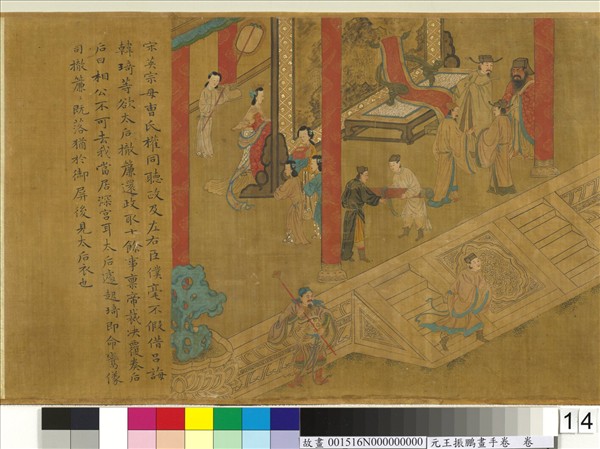 宋英宗母曹氏權同聽政及左右臣僕毫不假借呂誨
韓琦等欲太后撤簾還政取十餘事稟帝裁決覆奏后
后曰相公不可去我當居深宮耳太后遽起琦即命鸞儀
司撤簾既落猶於御屏後見太后衣也
故畫 001516N000000000 元王振鵬畫手卷 卷
14